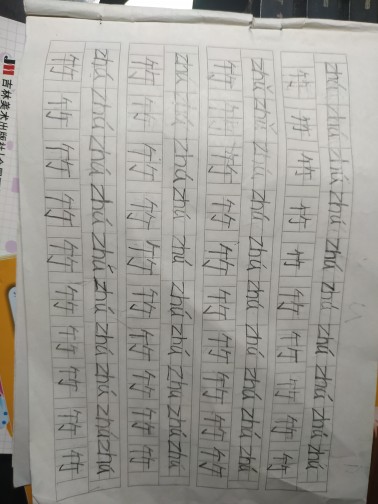 zhú zhú zhú zhú zhú zhú zhú zhú zhú zhú
竹 竹 竹 竹 竹 竹 竹 竹 竹 竹
zhǔ zhǔ zhú zhú zhú zhú zhú zhú zhú zhú
竹 竹 竹 竹 竹 竹 竹 竹 竹 竹
zhú zhú zhú zhú zhú zhú zhú zhú zhú
竹 竹 竹 竹 竹 竹 竹 竹 竹 竹
zhú zhú zhú zhú zhú zhú zhú zhú zhú zhú
竹 竹 竹 竹 竹 竹 竹 竹 竹 竹
吉林美术出版社